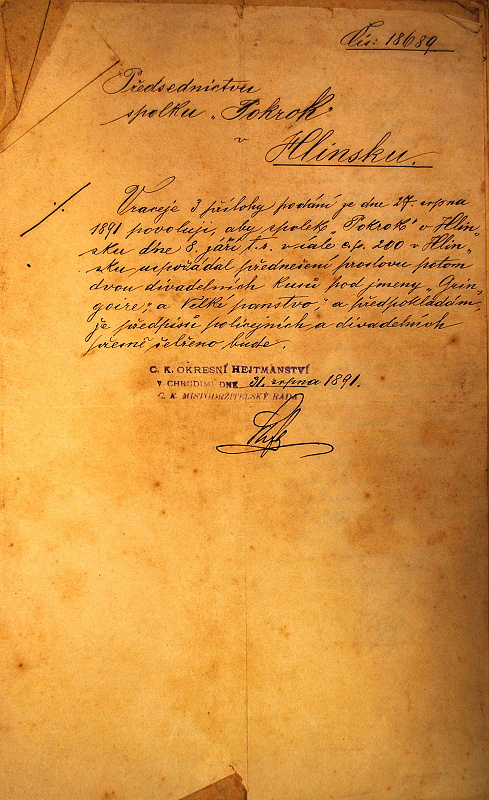 Čís: 18689
Předsednictvu
spolku „Pokrok"
v
Hlinsku.
Vraceje 3 přílohy podání ze dne 27. srpna
1891 povoluji, aby spolek „Pokrok" v Hlin„
sku dne 8. září t.r. v sále č.p. 200 v Hlin„
sku uspořádal přednešení proslovu potom
dvou divadelních kusů pod jmény „Grin„
goire", a „Velké panstvo", a předpokládám,
že předpisů policejních a divadelních
přesně šetřeno bude.
C. K. OKRESNÍ HEJTMANSTVÍ
V CHRUDIMI DNE 31. srpna 1891.
C. K. MÍSTODRŽITELSKÝ RADA